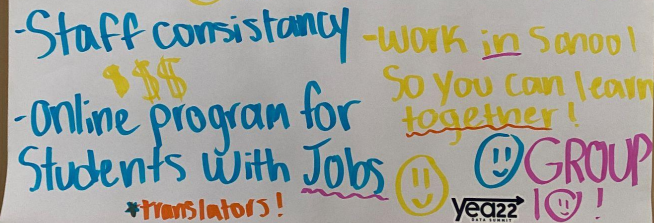 -Staff consistancy
$$$
-Online program for
Students with Jobs
*translators!
-Work in School
So you can learn
together!
GROUP
10!
yea22
DATA SUMMIT